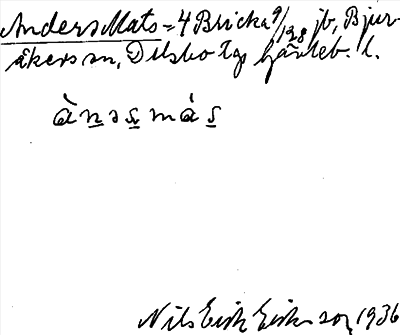 Anders Mats = 4 Bricka 9/128 jb, Bjur-
åkers sn, Delsbo tg Gävleb. l.
ànəsmás
Nils Erik Eriksson, 1936